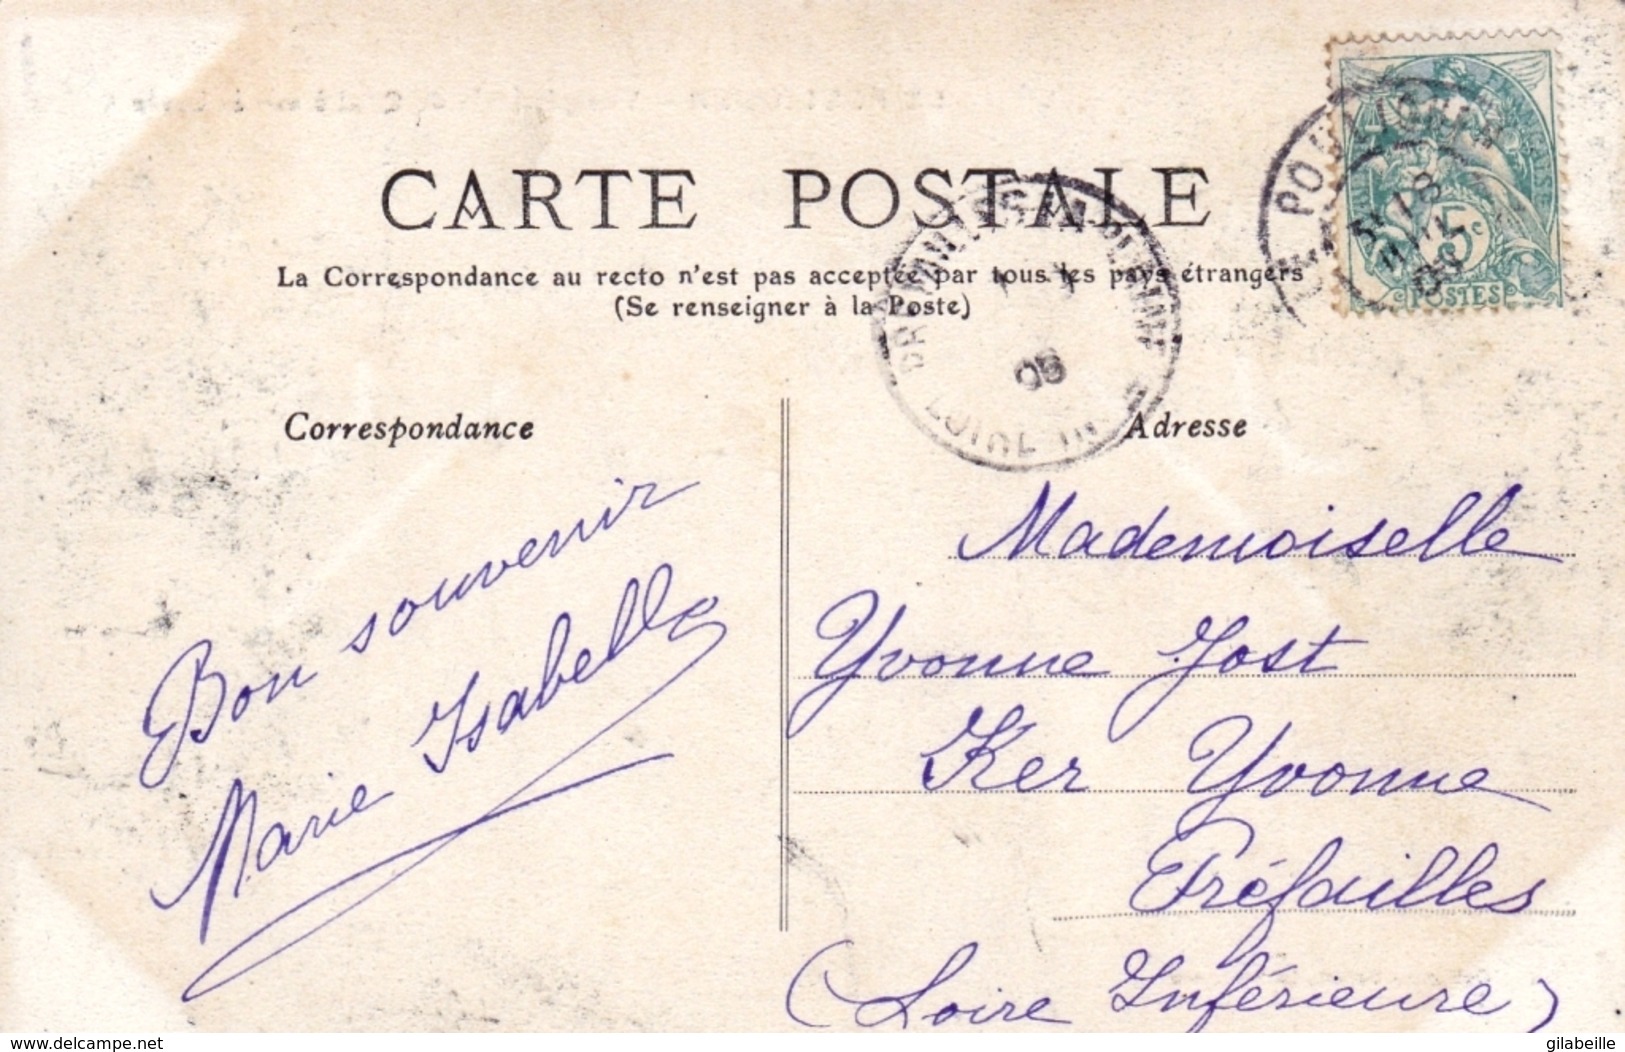 CARTE POSTALE
La Correspondance au recto n'est pas acceptée par tous les pays étrangers
(Se renseigner à la Poste)
5c
POSTES
05
Correspondance
Adresse
Bon souvenir
Marie Isabelle
Mademoiselle
Yvonne Jost
Ker Yvonne
Préfailles
(Loire Inférieure)
www.delcampe.net
gilabeille